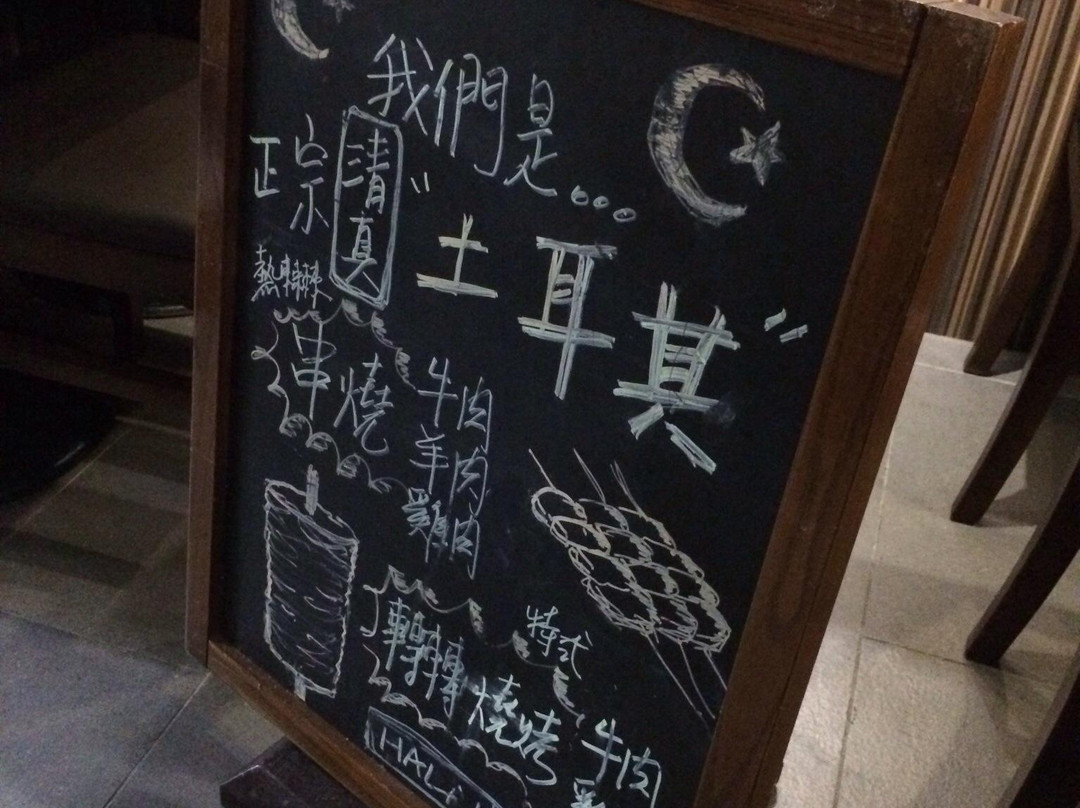 我們是...
正宗
清真
"土耳其"
熱辣辣
串燒
牛肉
羊肉
雞肉
特式
轉轉燒烤
牛肉
HALA